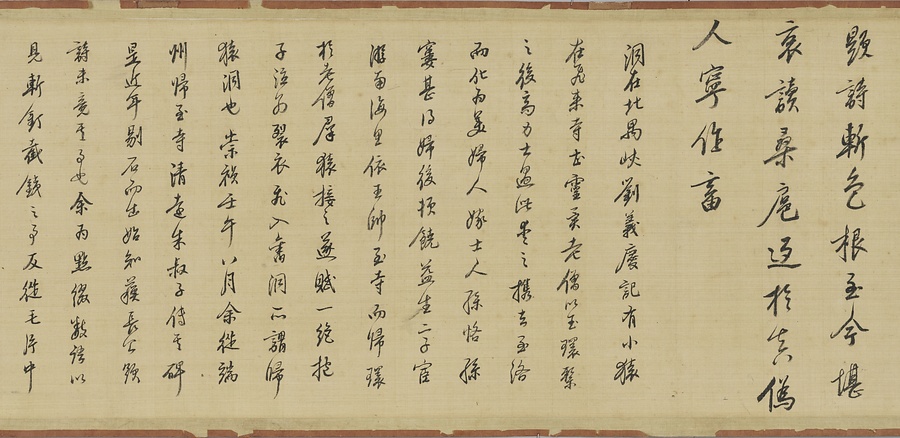 題詩斬色根至今堪
哀讀桑扈返於真偽
人寧作畜
洞在北禺峽劉義慶記有小猿
在飛来寺去靈亥老僧以玉環繫
之後高力士過此愛之携去至洛
而化為美婦人嫁士人孫恪孫
窶甚得婦後頓饒益生二子宦
游南海里依王帥至寺而帰環
於老僧羣猿接之遂賦一絕抱
子泣別裂衣飛入舊洞所謂帰
猿洞也崇禎壬午八月余從端
州帰至寺清遠朱叔子侍其碑
是近年剔石而出始知蘇長公題
詩未竟其事也余为點綴數語以
見斬釘截鐵之事反從毛序中